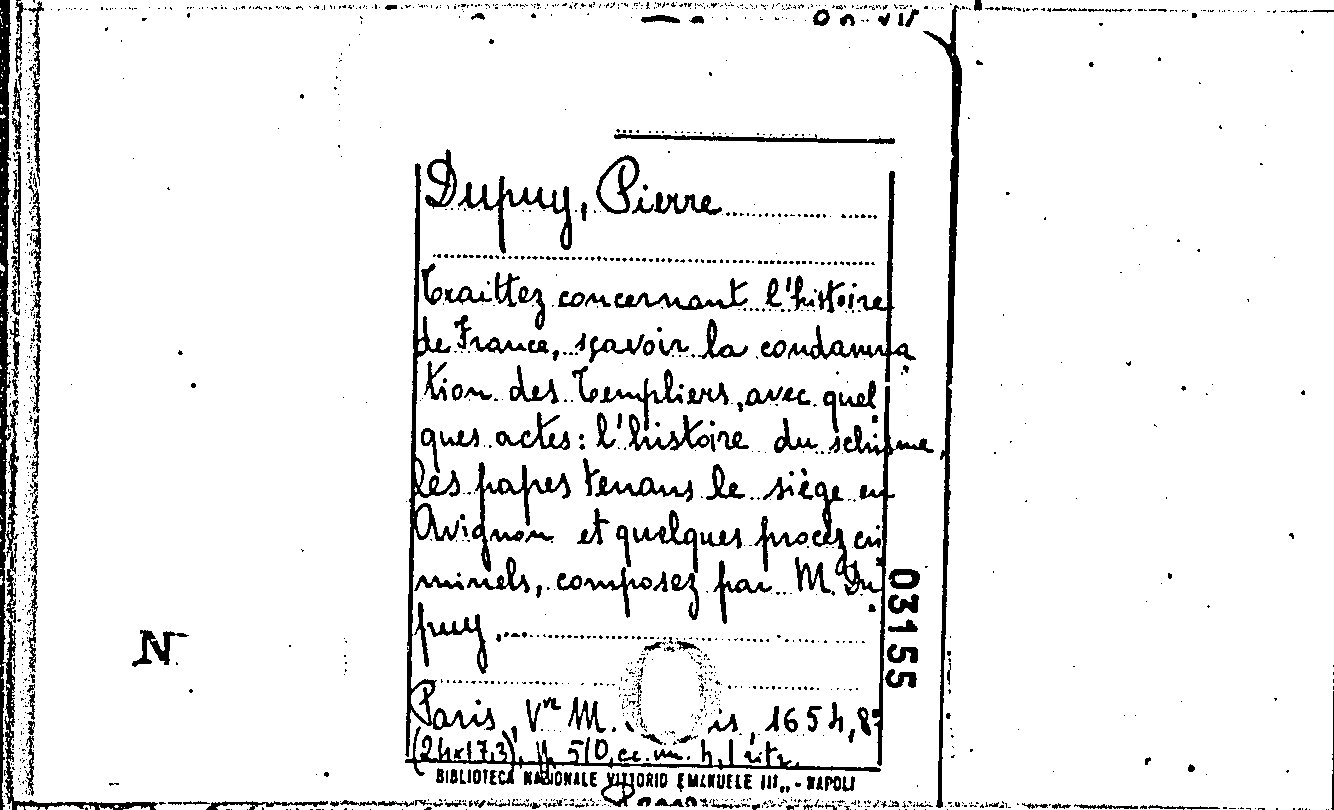 Dupuy, Pierre
Traittez concernant l'histoire
de France, sçavoir la condamna
tion des Templiers, avec quel
ques actes: l'histoire du schisme,
les papes tenans le siège en
Avignon et quelques procez cri
minels, composez par M. Du
puy,...
Paris, Vve M. is, 1654, 8°
(24x17,3), 510
BIBLIOTECA NAZIONALE VITTORIO EMANUELE III„ - NAPOLI
03155
N